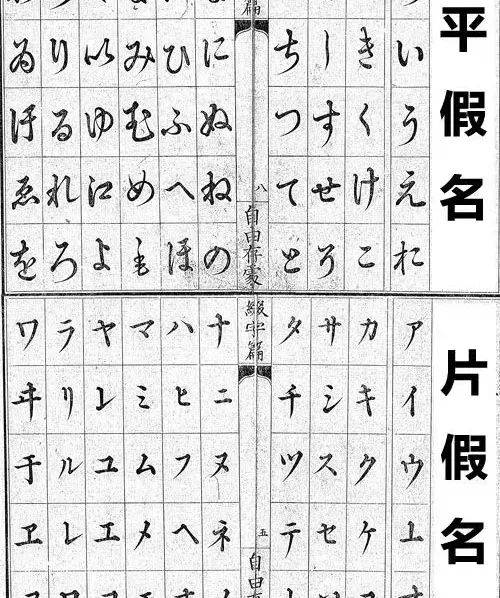 平假名
いうえお
きくけこ
しすせそ
ちつてと
篇
八
自由存
にぬねの
ひふへほ
みむめも
以ゆ江よ
りるれろ
ゐ汙ゑを
片假名
アイウ
カキクケ
サシスセ
タチツテ
綴字篇
五
自由
ナニヌネ
ハヒフヘ
マミムメ
ヤユエ
ラリルレ
ワヰ于ヱ